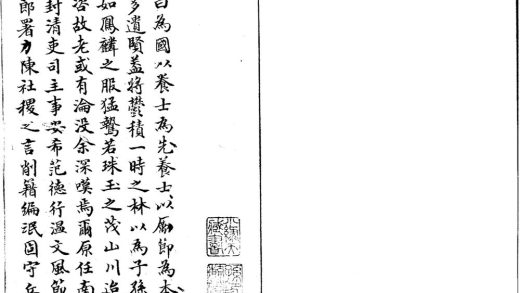 為國以養士為先養士以厲節為本
多遺賢蓋將鬱積一時之林以為子孫
如鳳麟之服猛鷙若珠玉之茂山川迨
咨故老或有淪没余深嘆焉爾原任南
封清吏司主事安希范德行温文風節
郎署力陳社稷之言削籍編氓固守丘